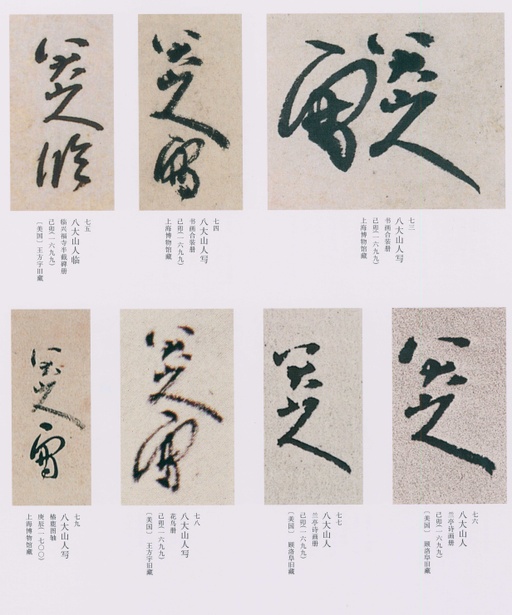 八大山人写
七三
八大山人写
书画合装册
己卯(一六九九)
上海博物馆藏
八大山人写
七四
八大山人写
书画合装册
己卯(一六九九)
上海博物馆藏
八大山人临
七五
八大山人临
临兴福寺半截碑册
己卯(一六九九)
(美国)王方宇旧藏
八大山人
七六
八大山人
兰亭诗画册
己卯(一六九九)
(美国)顾洛阜旧藏
八大山人
七七
八大山人
兰亭诗画册
己卯(一六九九)
(美国)顾洛阜旧藏
八大山人写
七八
八大山人写
花鸟册
己卯(一六九九)
(美国)王方宇旧藏
八大山人写
七九
八大山人写
椿鹿图轴
庚辰(一七〇〇)
上海博物馆藏